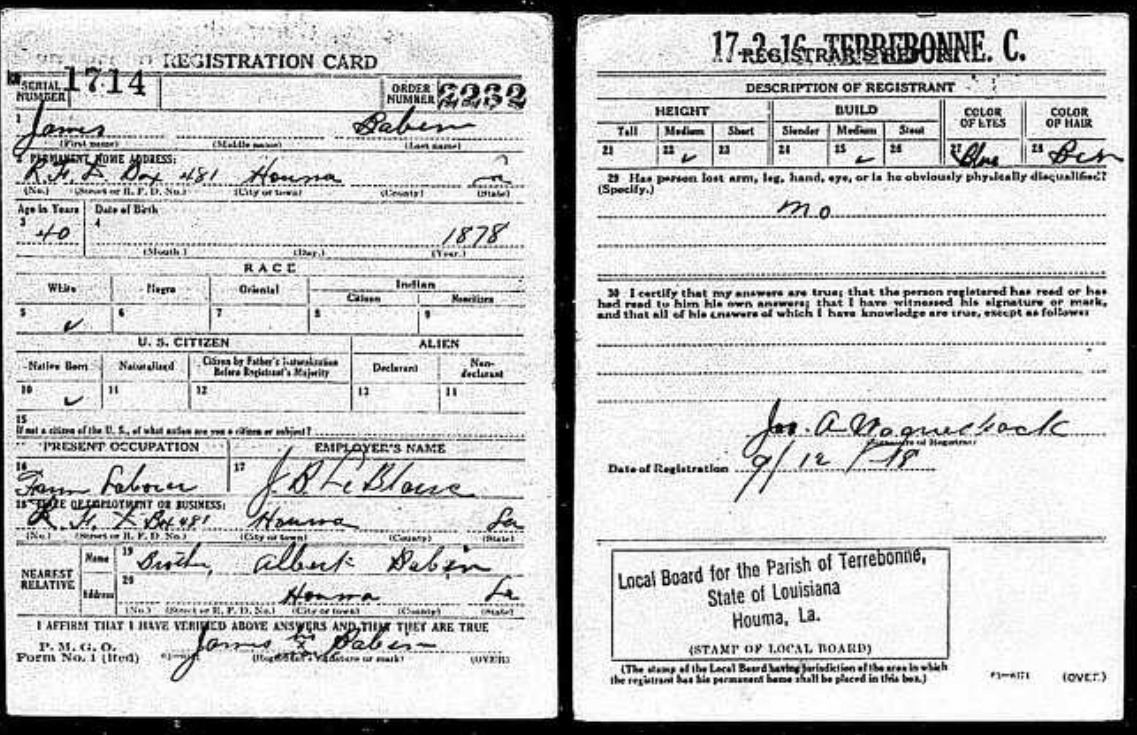 REGISTRATION CARD
SERIAL NUMBER 1714 ORDER NUMBER 2232
1 James Baben
(First name) (Middle name) (Last name)
2 PERMANENT HOME ADDRESS:
R. F. D. Box 481 Houma La
(No.) (Street or R. F. D. No.) (City or town) (County) (State)
Age in Years Date of Birth
3 40 4 1878
(Month.) (Day.) (Year.)
RACE
White Negro Oriental Indian
Citizen Noncitizen
5 ✓ 6 7 8 9
U. S. CITIZEN ALIEN
Native Born Naturalized Citizen by Father's Naturalization Before Registrant's Majority Declarant Non-declarant
10 ✓ 11 12 13 14
15
If not a citizen of the U. S., of what nation are you a citizen or subject?
PRESENT OCCUPATION EMPLOYER'S NAME
16 Farm Laborer 17 J. B. Le Blanc
18 PLACE OF EMPLOYMENT OR BUSINESS:
R. F. D Box 481 Houma La
(No.) (Street or R. F. D. No.) (City or town) (County) (State)
NEAREST RELATIVE Name 19 Brother, Albert Baben
Address 20 Houma La
(No.) (Street or R. F. D. No.) (City or town) (County) (State)
I AFFIRM THAT I HAVE VERIFIED ABOVE ANSWERS AND THAT THEY ARE TRUE
P. M. G. O.
Form No. 1 (Red) James his X Baben
(Registrant's signature or mark) (OVER)
17-2-16 TERREBONNE. C.
REGISTRAR'S REPORT
DESCRIPTION OF REGISTRANT
HEIGHT BUILD COLOR OF EYES COLOR OF HAIR
Tall Medium Short Slender Medium Stout
21 22 ✓ 23 24 25 ✓ 26 27 Blue 28
29 Has person lost arm, leg, hand, eye, or is he obviously physically disqualified?
(Specify.)
no
30 I certify that my answers are true; that the person registered has read or has
had read to him his own answers; that I have witnessed his signature or mark,
and that all of his answers of which I have knowledge are true, except as follows:
Jos. A.
(Signature of Registrar)
Date of Registration 9/12/18
Local Board for the Parish of Terrebonne,
State of Louisiana
Houma, La.
(STAMP OF LOCAL BOARD)
(The stamp of the Local Board having jurisdiction of the area in which
the registrant has his permanent home shall be placed in this box.)
(OVER)